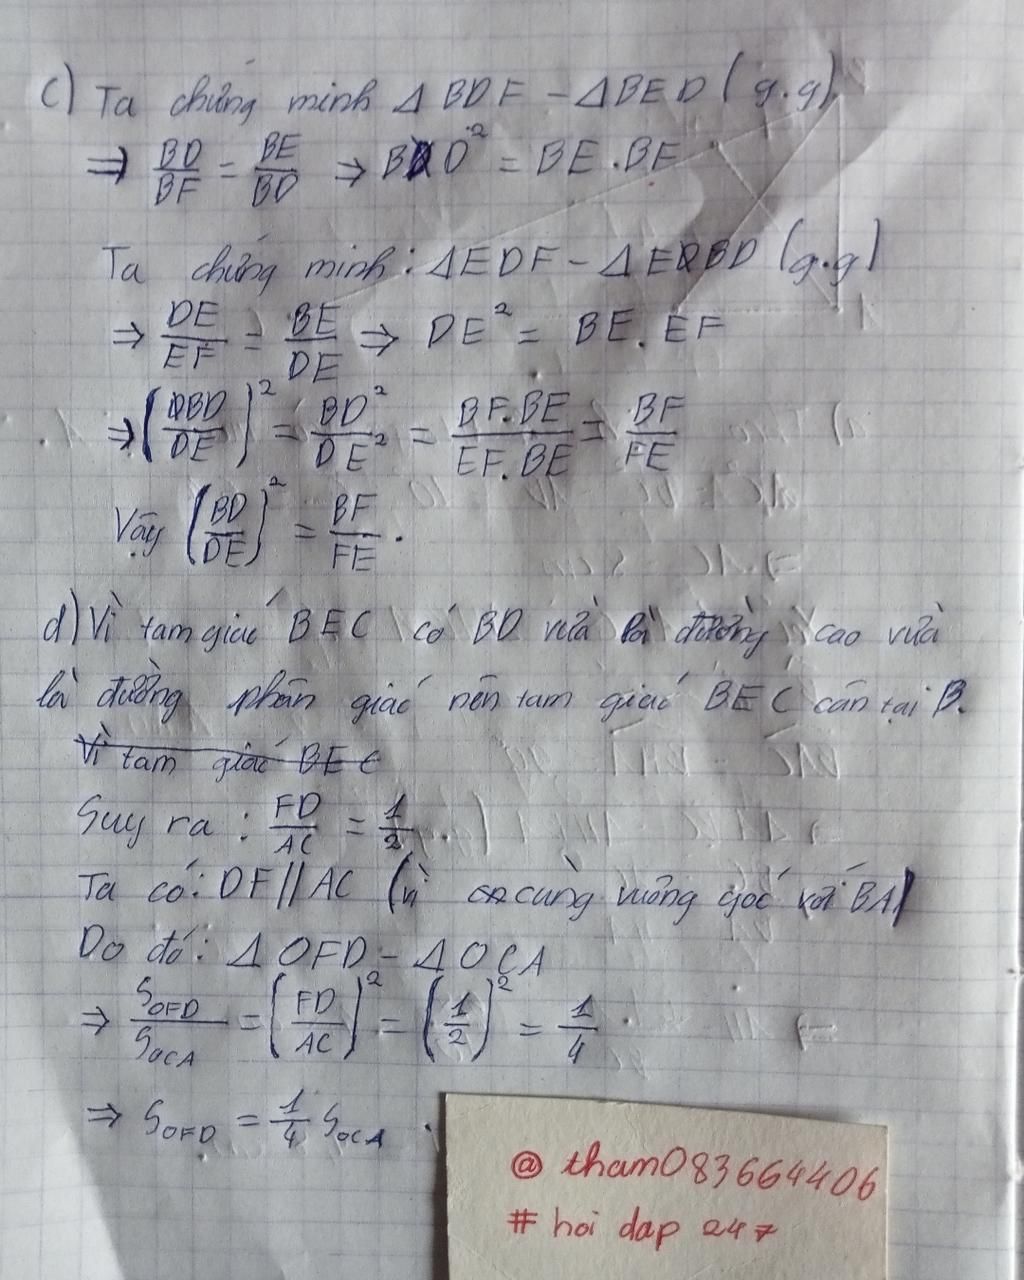 c) Ta chứng minh Δ BDF ~ Δ BED (g.g)
⇒ BD/BF = BE/BD ⇒ BD² = BE.BF
Ta chứng minh: ΔEDF ~ ΔEBD (g.g)
⇒ DE/EF = BE/DE ⇒ DE² = BE.EF
⇒ (BD/DE)² = BD²/DE² = BF.BE/EF.BE = BF/FE
Vậy (BD/DE)² = BF/FE.
d) Vì tam giác BEC có BD vừa là đường cao vừa
là đường phân giác nên tam giác BEC cân tại B.
Vì tam giác BEC
Suy ra: FD/AC = 1/2
Ta có: DF // AC (vì cùng vuông góc với BA)
Do đó: Δ OFD ~ Δ OCA
⇒ S_OFD/S_OCA = (FD/AC)² = (1/2)² = 1/4.
⇒ S_OFD = 1/4 S_OCA.
@ tham083664406
# hoi dap 247